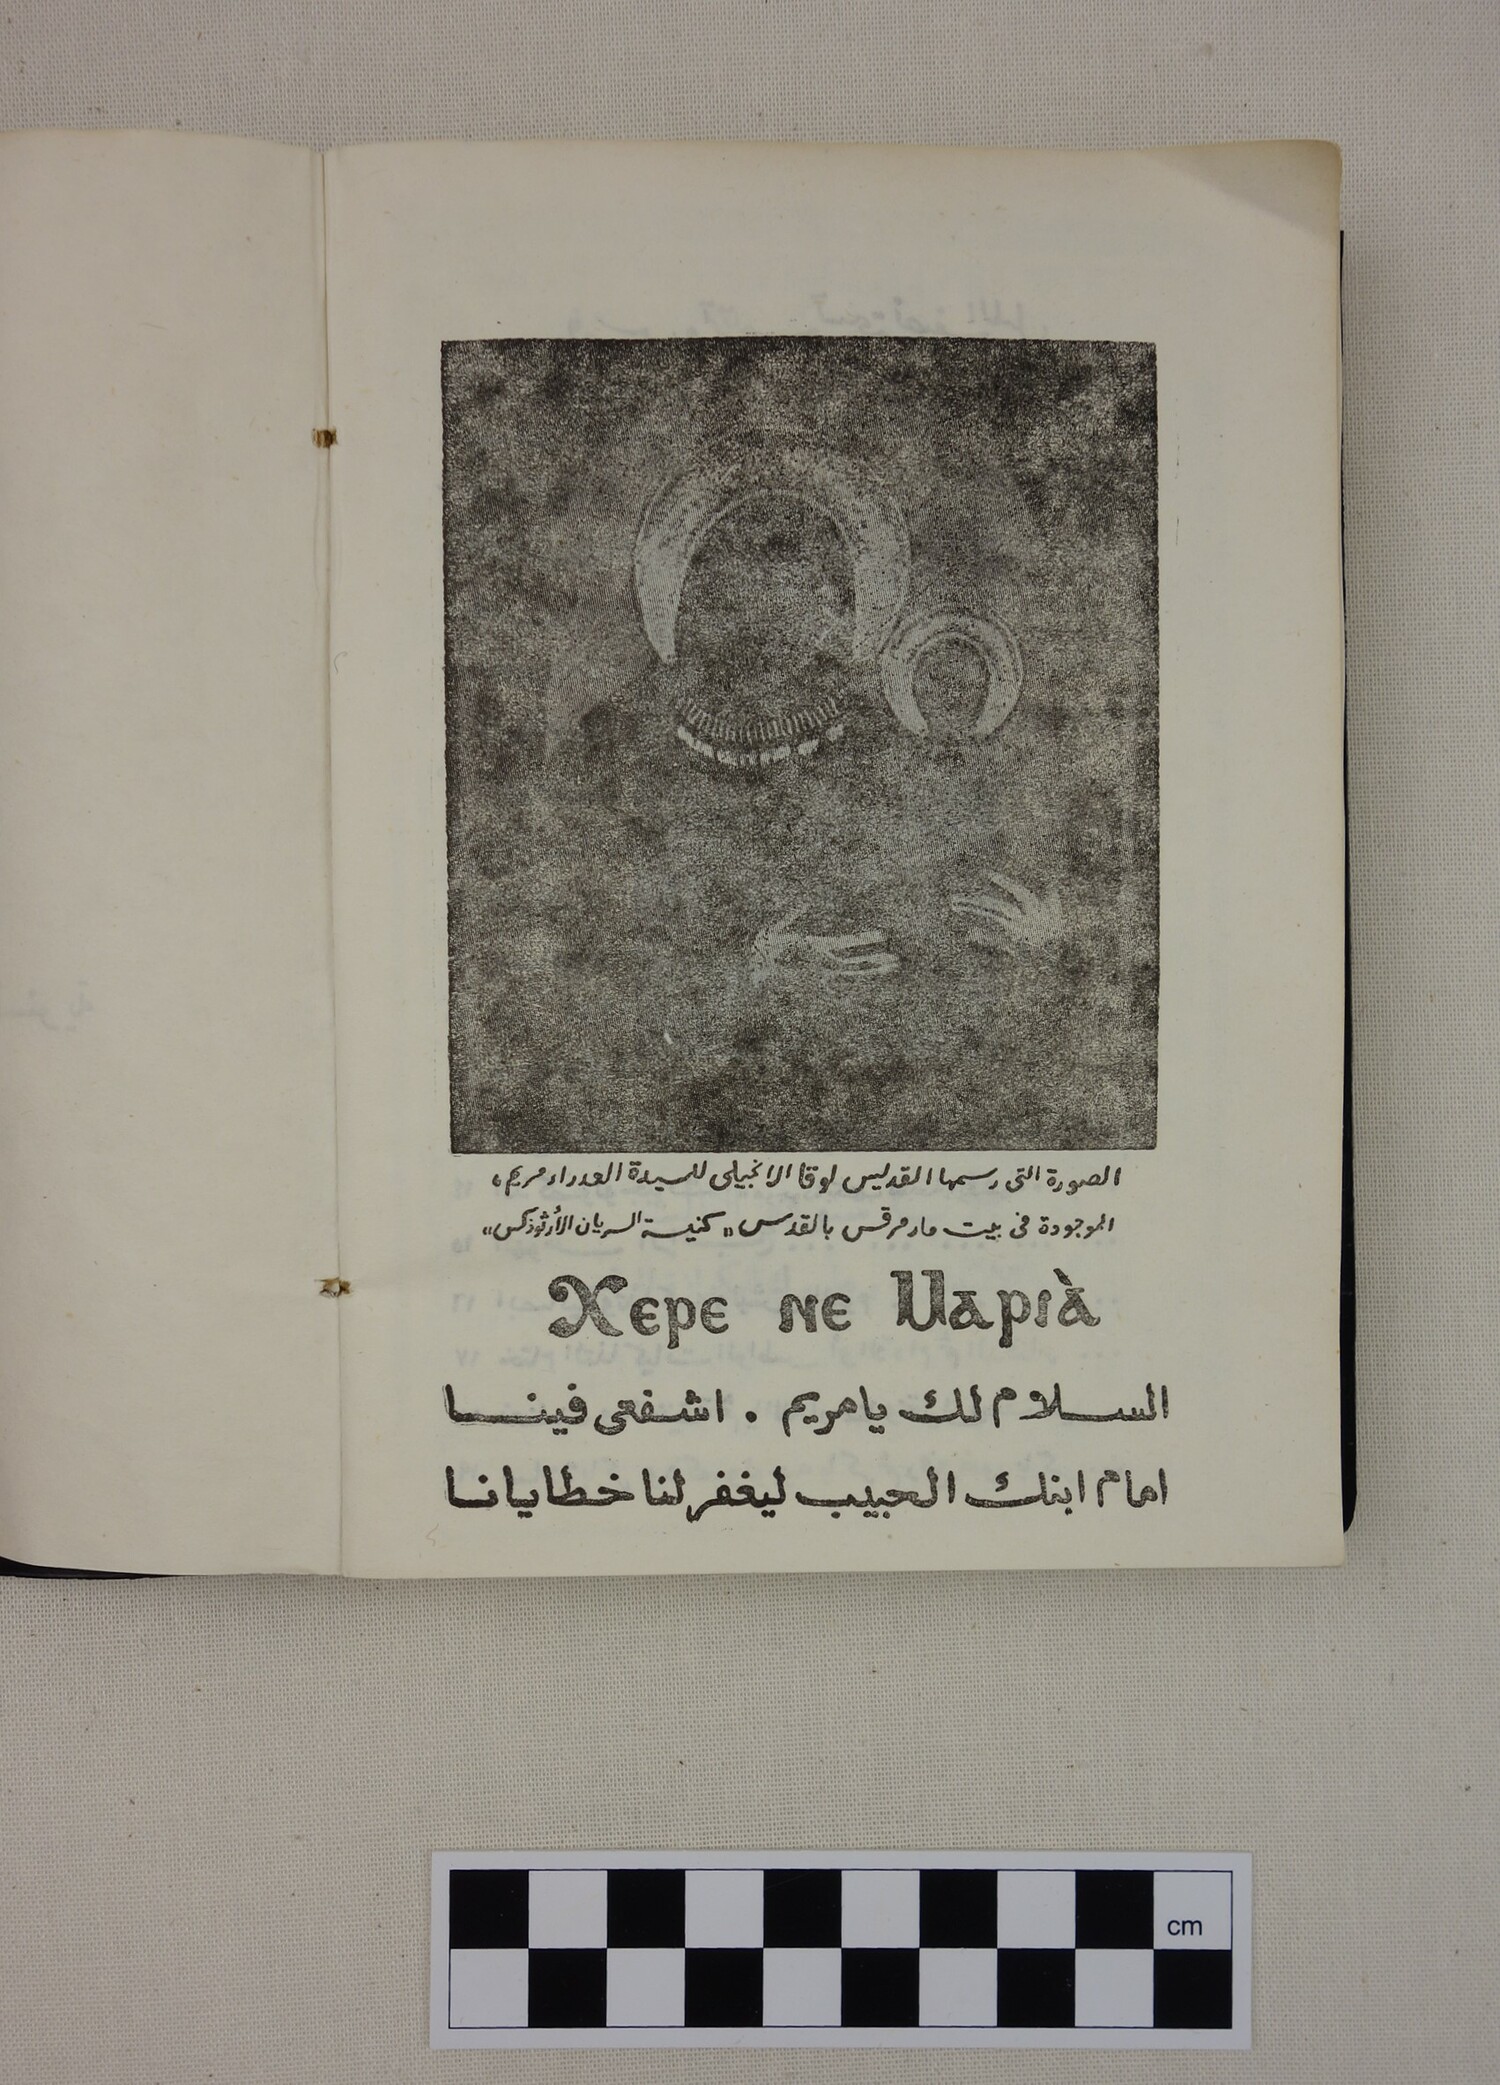 الصورة التى رسمها القديس لوقا الانجيلى للسيدة العدراء مريم،
الموجودة فى بيت مار مرقس بالقدس «كنيسة السريان الأرثوذكس»
Ⲭⲉⲣⲉ ⲛⲉ Ⲙⲁⲣⲓⲁ̀
الســلام لك يا مريم . اشفعى فينــا
امام ابنك الحبيب ليغفر لنا خطايانا
cm